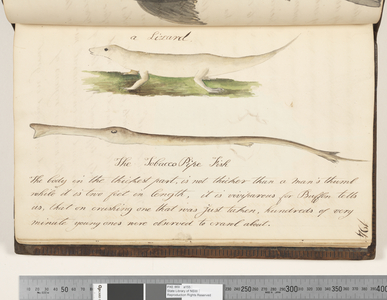 a Lizard.
The Tobacco Pipe Fish
The body in the thickest part, is not thicker than a man's thumb
while it is two feet in length, it is viviparous for Buffon tells
us, that on crushing one that was just taken, hundreds of very
minute young ones were observed to crawl about.